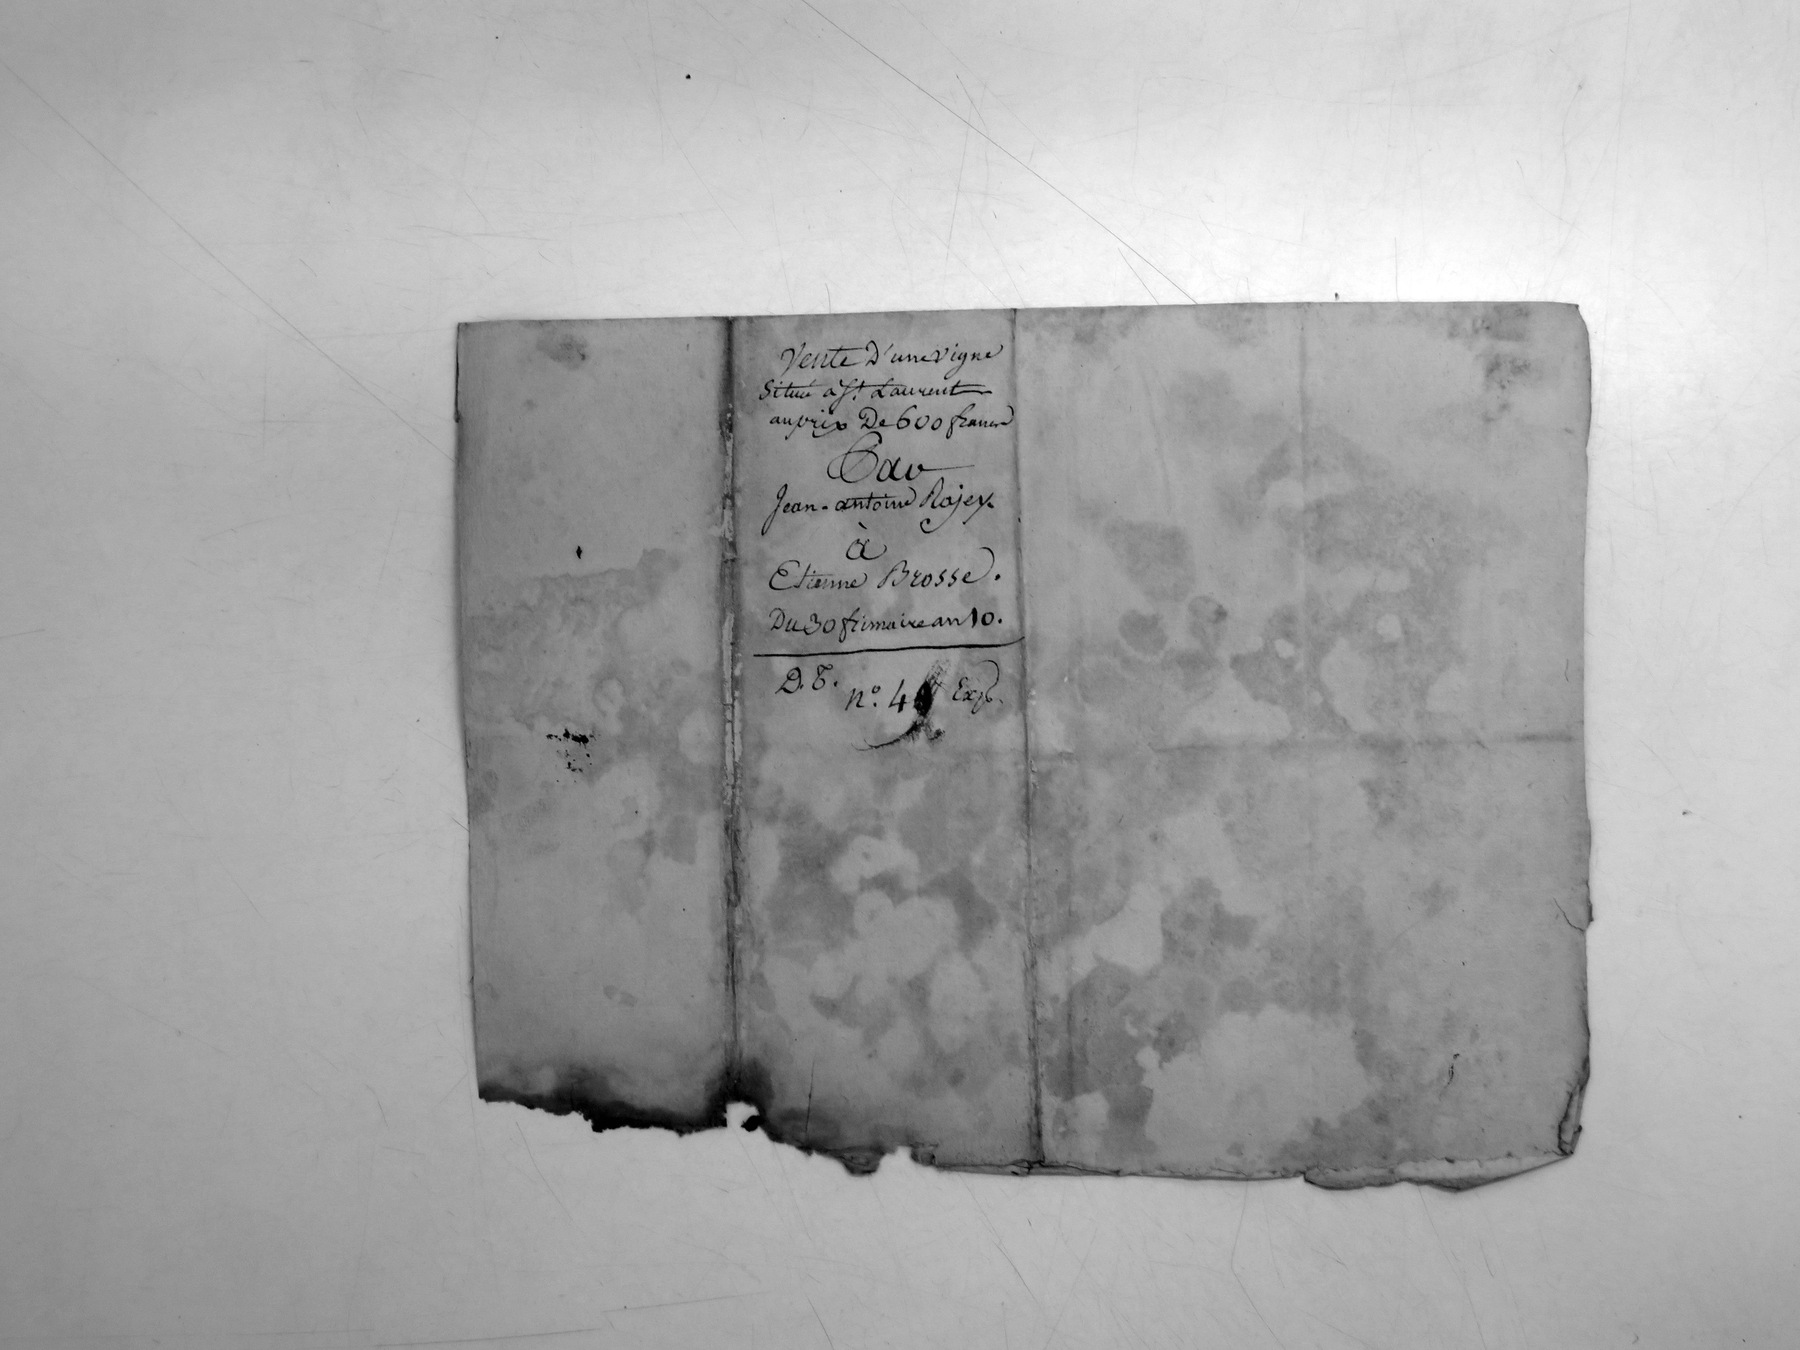 Vente D'une vigne
Situé a St. Laurent
au prix De 600 francs
Par
Jean-antoine Rojey.
à
Etienne Brosse.
Du 30 frimaire an 10.
D. T.
n°. 4 Exp.